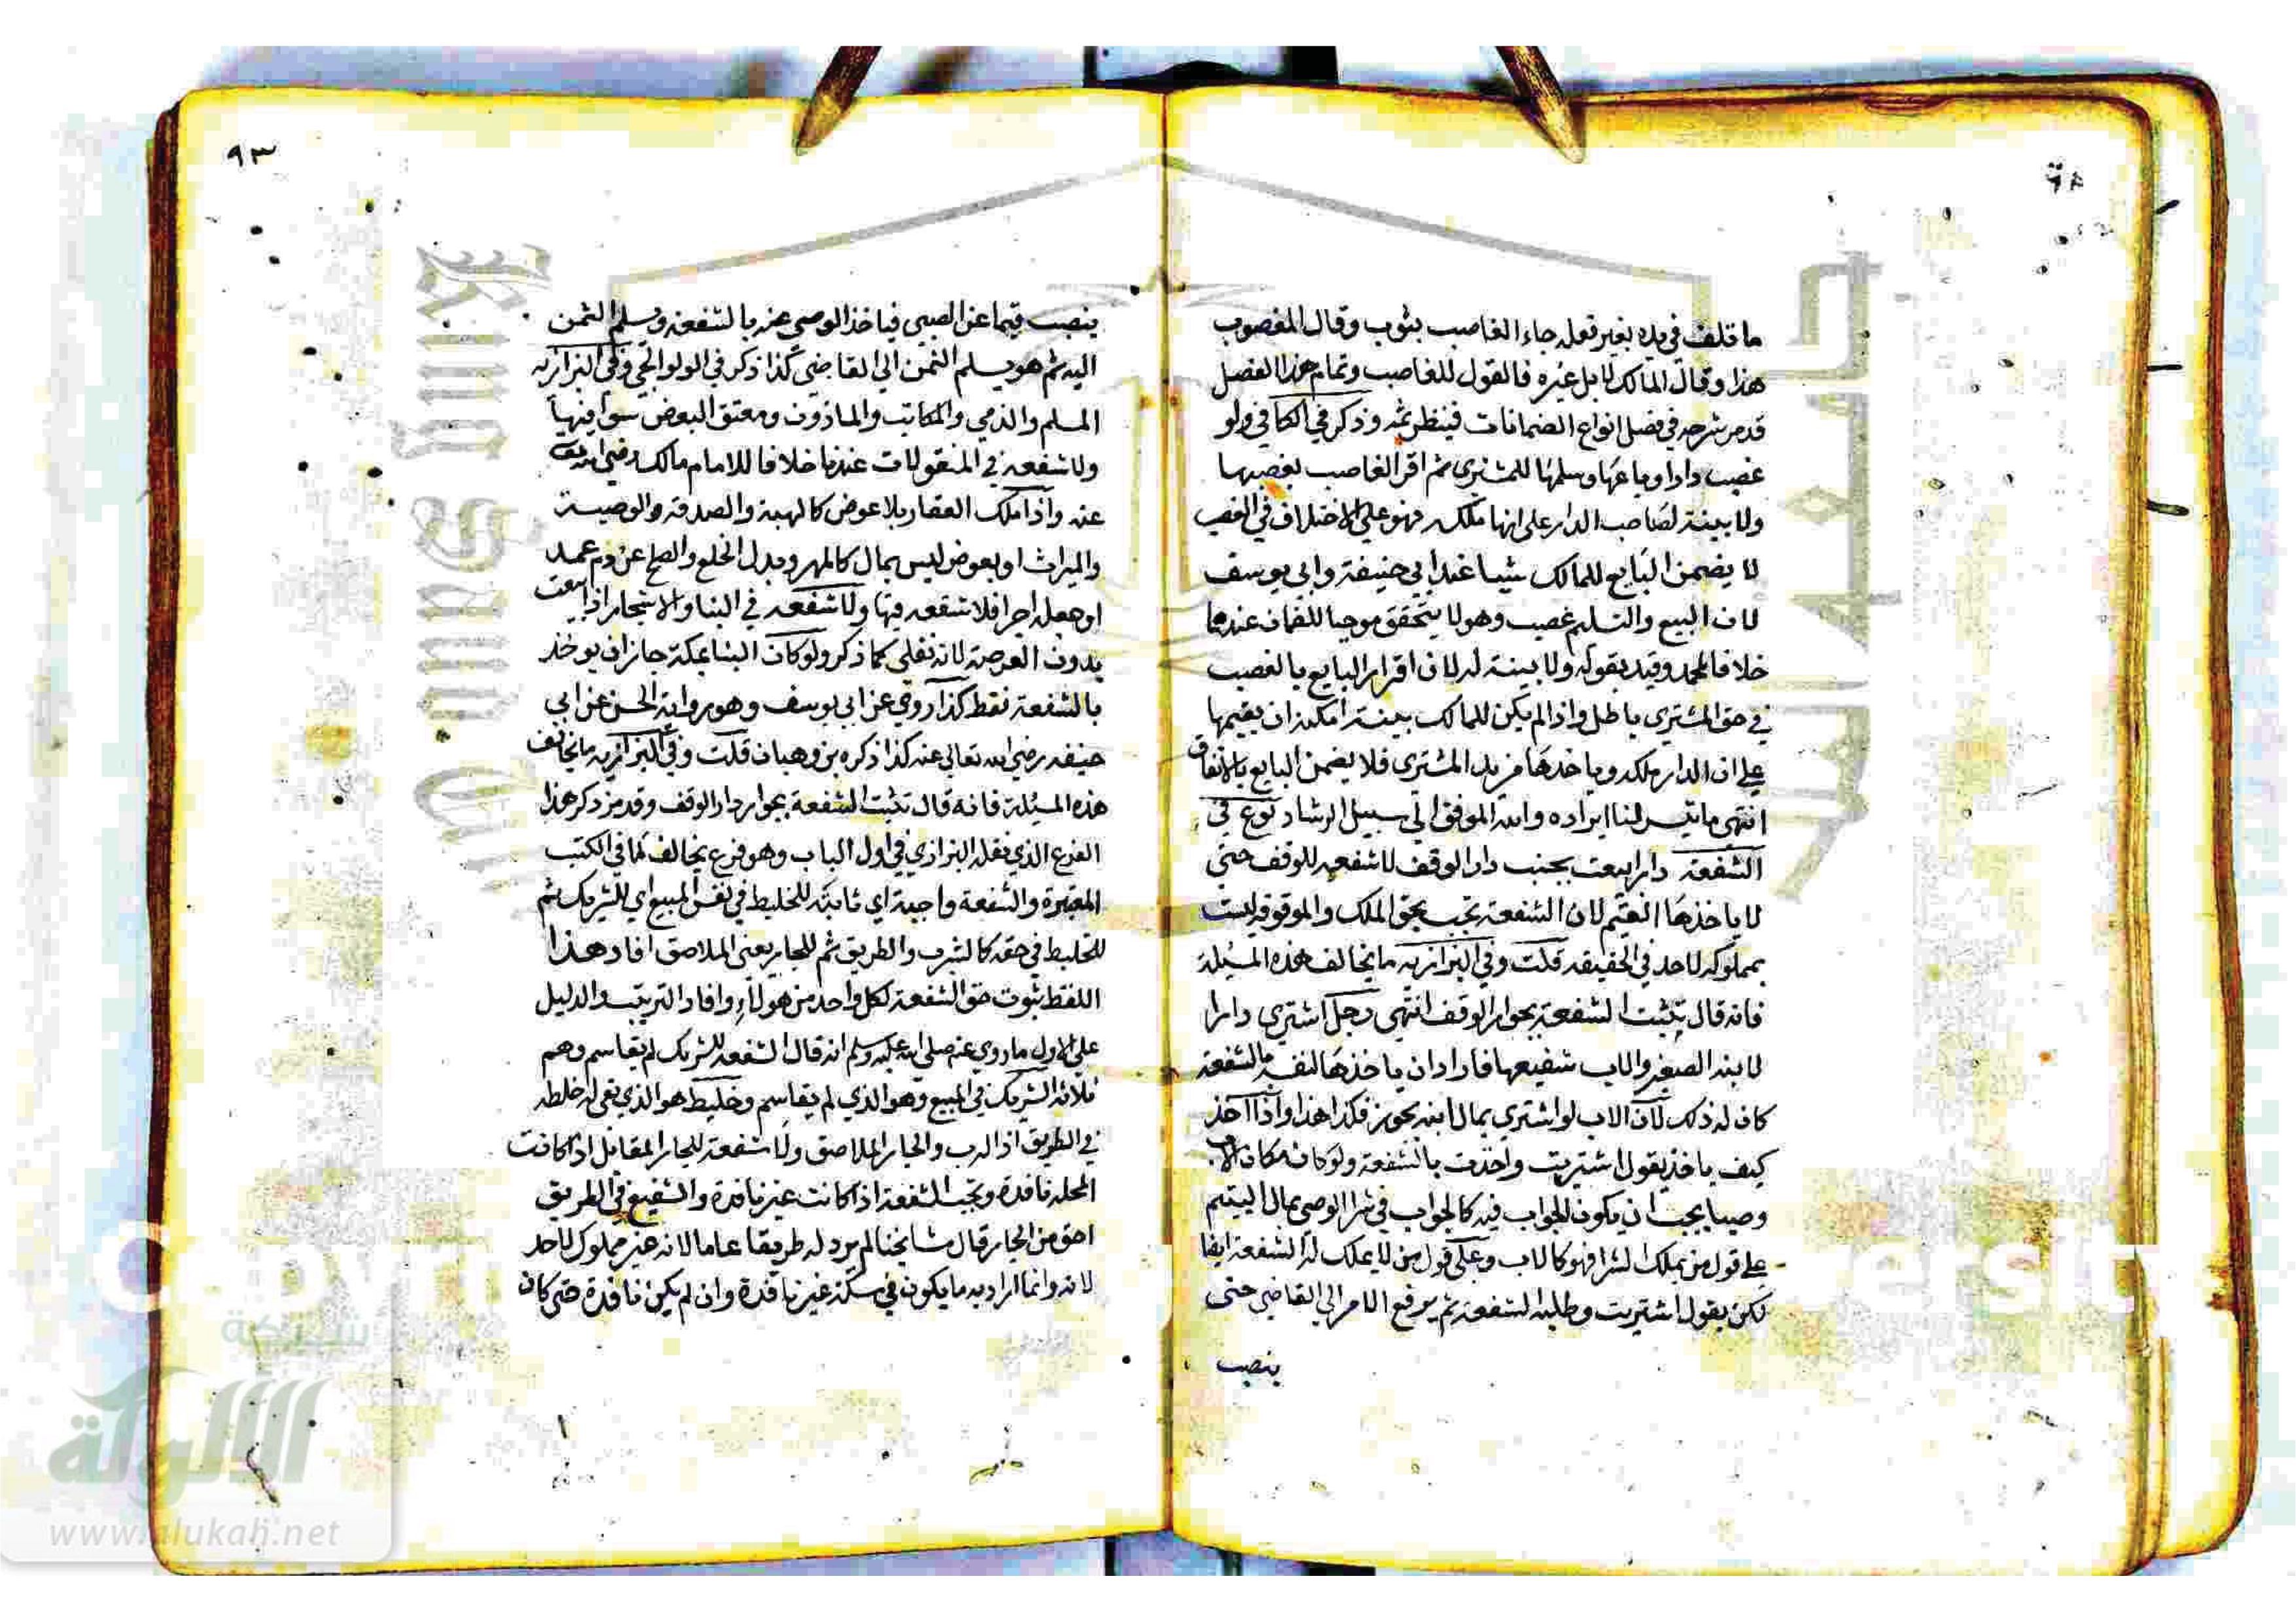 ما تلف في يده بغير فعله جاء الغاصب بثوب وقال المغصوب
هذا وقال المالك لا بل غيره فالقول للغاصب وتمام هذا الفصل
قد مر شرحه في فصل انواع الضمانات فينظر ثمه وذكر في الكافي ولو
غصب دارا وباعها وسلمها للمشتري ثم اقر الغاصب بغصبها
ولا بينة لصاحب الدار على انها ملكه فهو على الاختلاف في الغصب
لا يضمن البايع للمالك شيا عند ابي حنيفة وابي يوسف
لان البيع والتسليم غصب وهو لا يتحقق موجبا للضمان عندهما
خلافا لمحمد وقيد بقوله ولا بينة له لان اقرار البايع بالغصب
في حق المشتري باطل واذا لم يكن للمالك بينة امكنه ان يقيمها
على ان الدار ملكه وياخذها من يد المشتري فلا يضمن البايع بالاتفاق
انتهى ما تيسر لنا ايراده والله الموفق الى سبيل الرشاد نوع في
الشفعة دار بيعت بجنب دار الوقف لا شفعه للوقف حتى
لا ياخذها القيم لان الشفعة تجب بحق الملك والموقوفة ليست
بمملوكه لاحد في الحقيقه قلت وفي البزازيه ما يخالف هذه المسئلة
فانه قال تثبت الشفعة بجوار الوقف انتهى رجل اشترى دارا
لابنه الصغير والاب شفيعها فاراد ان ياخذها لنفسه بالشفعة
كان له ذلك لان الاب لو اشترى بمال ابنه يجوز فكذا هذا واذا اخذ
كيف ياخذ يقول اشتريت واخذت بالشفعة ولو كان مكان الاب
وصيا يجب ان يكون الجواب فيه كالجواب في شرا الوصي مال اليتيم
على قول من يملك الشرا فهو كالاب وعلى قول من لا يملك له الشفعة ايضا
لكن يقول اشتريت وطلبت الشفعة ثم يرفع الامر الى القاضي حتى
ينصب
٩٣
ينصب قيما عن الصبي فياخذ الوصي عنه بالشفعة وسلم الثمن
اليه ثم هو يسلم الثمن الى القاضي كذا ذكر في الولوالجي وفي البزازيه
المسلم والذمي والمكاتب والماذون ومعتق البعض سوا فيها
ولا شفعه في المنقولات عندنا خلافا للامام مالك رضي الله تعالى
عنه واذا ملك العقار بلا عوض كالهبة والصدقة والوصية
والميراث او بعوض ليس بمال كالمهر وبدل الخلع والصلح عن دم عمد
او جعله اجرا فلا شفعه فيها ولا شفعه في البنا والاشجار اذا بيعت
بدون العرصة لانه نقلي كما ذكر ولو كان البنا بمكة جاز ان يوخذ
بالشفعة فقط كذا روي عن ابي يوسف وهو رواية الحسن عن ابي
حنيفه رضي الله تعالى عنه كذا ذكره بن وهبان قلت وفي البزازيه ما يخالف
هذه المسئلة فانه قال تثبت الشفعة بجوار دار الوقف وقد مر ذكر هذا
الفرع الذي نقله البزازي في اول الباب وهو فرع يخالف لما في الكتب
المعتبرة والشفعة واجبة اي ثابتة للخليط في نفس المبيع اي للشريك ثم
للخليط في حقه كالشرب والطريق ثم للجار يعني الملاصق افاد هذا
اللفظ ثبوت حق الشفعة لكل واحد من هولاء وافاد الترتيب والدليل
على الاول ما روي عنه صلى الله عليه وسلم انه قال الشفعه للشريك لم يقاسم وهم
ثلاثة الشريك في المبيع وهو الذي لم يقاسم وخليط هو الذي بقي له خلطه
في الطريق اذ الدرب والجار الملاصق ولا شفعة للجار المقابل اذا كانت
المحله نافذة وتجب الشفعة اذا كانت غير نافذة والشفيع في الطريق
احق من الجار قال مشايخنا لم يرد له طريقا عاما لانه غير مملوك لاحد
لانه وانما اراد به ما يكون في سكة غير نافذة وان لم يكن نافذة حتى كان
جامعة الملك
King Saud
شبكة
الألوكة
www.alukah.net